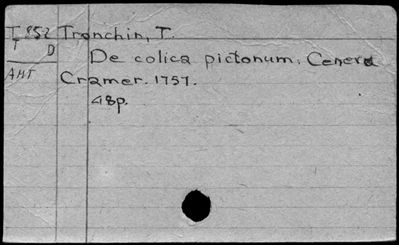 T 852 Tronchin, T.
T D De colica pictonum. Cenera
AHT Cramer. 1757.
48p.